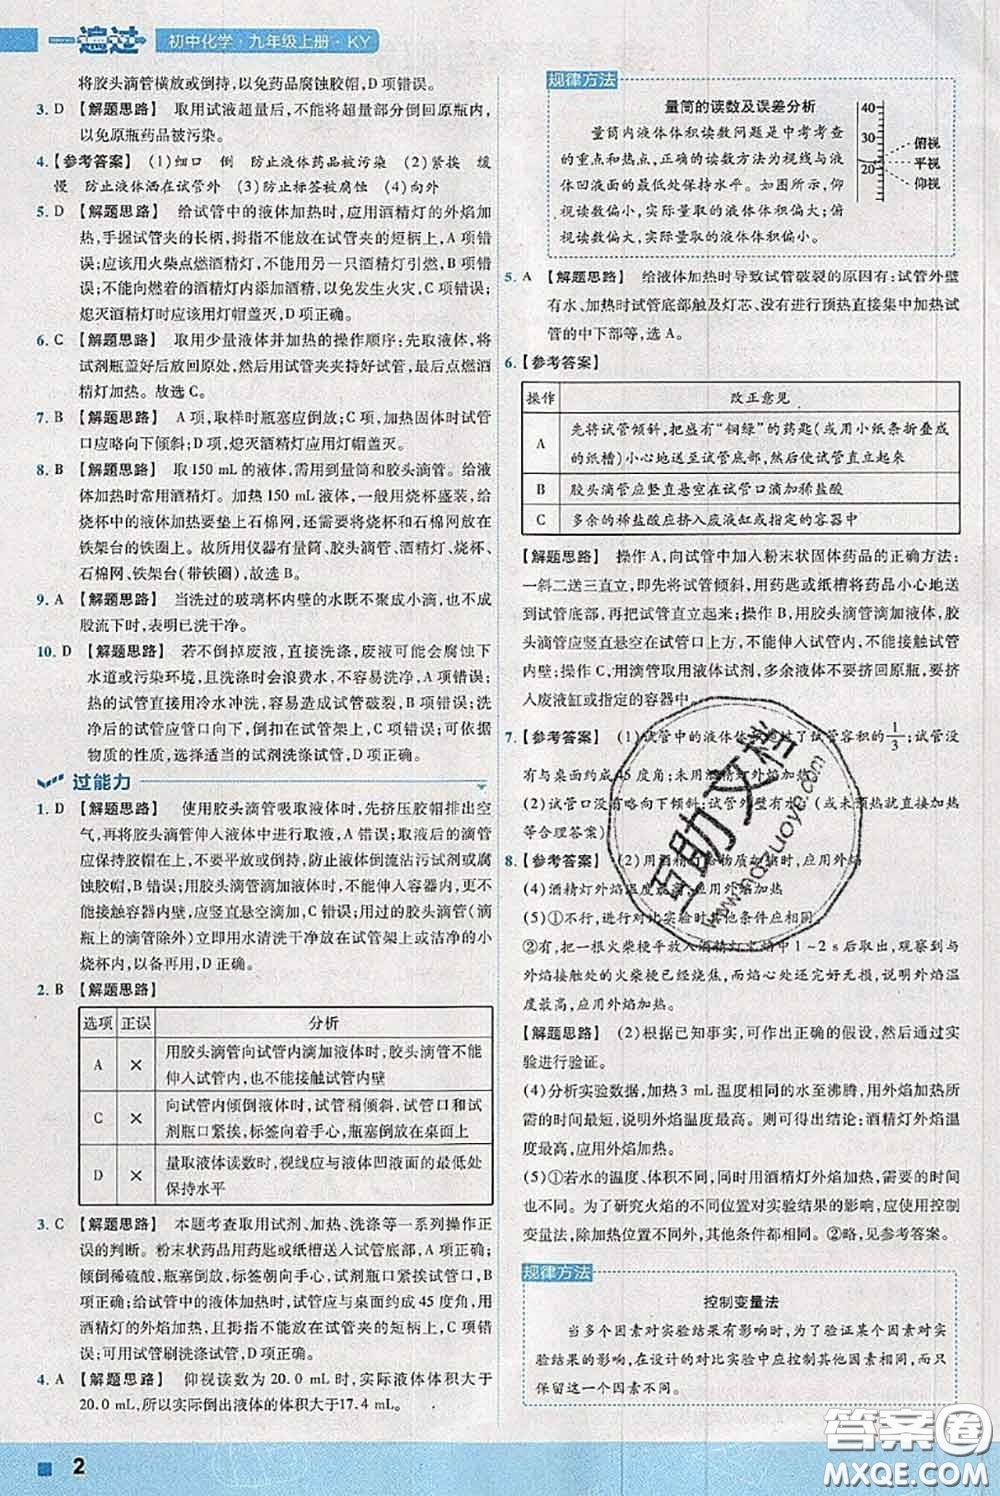 一遍过 初中化学·九年级上册·KY
将胶头滴管横放或倒持，以免药品腐蚀胶帽，D 项错误。
3. D 【解题思路】 取用试液超量后，不能将超量部分倒回原瓶内，
以免原瓶药品被污染。
4.【参考答案】 (1)细口 倒 防止液体药品被污染 (2)紧挨 缓
慢 防止液体洒在试管外 (3)防止标签被腐蚀 (4)向外
5. D 【解题思路】 给试管中的液体加热时，应用酒精灯的外焰加
热，手握试管夹的长柄，拇指不能放在试管夹的短柄上，A 项错
误；应该用火柴点燃酒精灯，不能用酒精灯引燃，B 项错误；
不能向燃着的酒精灯内添加酒精，以免发生火灾，C 项错误；
熄灭酒精灯时应该用灯帽盖灭，D 项正确。
6. C 【解题思路】 取用少量液体并加热的操作顺序：先取液体，将
试剂瓶盖好后放回原处，然后用试管夹夹持试管，最后点燃酒
精灯加热。故选 C。
7. B 【解题思路】 A 项，取样时瓶塞应倒放；C 项，加热固体时试管
口应略向下倾斜；D 项，熄灭酒精灯应用灯帽盖灭。
8. B 【解题思路】 取 150 mL 的液体，需用到量筒和胶头滴管。给液
体加热时常用酒精灯。加热 150 mL 液体，一般用烧杯盛装，给
烧杯中的液体加热要垫上石棉网，还需要将烧杯和石棉网放在
铁架台的铁圈上。故所用仪器有量筒、胶头滴管、酒精灯、烧杯、
石棉网、铁架台(带铁圈)，故选 B。
9. A 【解题思路】 当洗过的玻璃杯内壁的水既不聚成小滴，也不成
股流下时，表明已洗干净。
10. D 【解题思路】 若不倒掉废液，直接洗涤，废液可能会腐蚀下
水道或污染环境，且洗涤时会浪费水，不易洗干净，A 项错误；
热的试管直接用冷水冲洗，容易造成试管破裂，B 项错误；洗
净后的试管应管口向下，倒扣在试管架上，C 项错误；可根据
物质的性质，选择适当的试剂洗涤试管，D 项正确。
过能力
1. D 【解题思路】 使用胶头滴管吸取液体时，先挤压胶帽排出空
气，再将胶头滴管伸入液体中进行取液，A 错误；取液后的滴管
应保持胶帽在上，不要平放或倒持，防止液体倒流沾污试剂或腐
蚀胶帽，B 错误；用胶头滴管向容器中滴加液体时，不要把滴管
伸入或接触容器内壁，应竖直悬空滴加，C 错误；用过的胶头滴管(滴
瓶上的滴管除外)立即用水清洗干净放在试管架上或洁净的小
烧杯内，以备再用，D 正确。
2. B 【解题思路】
选项 正误 分析
A × 用胶头滴管向试管内滴加液体时，胶头滴管不能
伸入试管内，也不能接触试管内壁
C × 向试管内倾倒液体时，试管稍倾斜，试管口和试
剂瓶口紧挨，标签向着手心，瓶塞倒放在桌面上
D × 量取液体读数时，视线应与液体凹液面的最低处
保持水平
3. C 【解题思路】 本题考查取用试剂、加热、洗涤等一系列操作正
误的判断。粉末状药品用药匙或纸槽送入试管底部，A 正确；
倾倒稀硫酸，瓶塞倒放，标签朝向手心，试剂瓶口紧挨试管口，B
正确；给试管中的液体加热时，试管应与桌面约成 45 度角，用
酒精灯的外焰加热，且拇指不能放在试管夹的短柄上，C 错
误；可用试管刷洗涤试管，D 正确。
4. A 【解题思路】 仰视读数为 20.0 mL 时，实际液体体积大于
20.0 mL，所以实际倒出液体的体积大于17.4 mL。
规律方法
量筒的读数及误差分析
量筒内液体体积读数问题是中考考查
的重点和热点，正确的读数方法为视线与液
体凹液面的最低处保持水平。如图所示，仰
视读数偏小，实际量取的液体体积偏大；俯
视读数偏大，实际量取的液体体积偏小。
40
30
20
俯视
平视
仰视
5. A 【解题思路】 给液体加热时导致试管破裂的原因有：试管外壁
有水、加热时试管底部触及灯芯、没有进行预热直接集中加热试
管的中下部等，选 A。
6.【参考答案】
操作 改正意见
A 先将试管倾斜，把盛有“铜绿”的药匙(或用小纸条折叠成
的纸槽)小心地送至试管底部，然后使试管直立起来
B 胶头滴管应竖直悬空在试管口滴加稀盐酸
C 多余的稀盐酸应挤入废液缸或指定的容器中
【解题思路】 操作 A，向试管中加入粉末状固体药品的正确方法：
一斜二送三直立，即先将试管倾斜，用药匙或纸槽将药品小心地送
到试管底部，再把试管直立起来；操作 B，用胶头滴管滴加液体，胶
头滴管应竖直悬空在试管口上方，不能伸入试管里，不能接触试管
内壁；操作 C，用滴管取用液体试剂，多余液体不要挤回原瓶，要挤
入废液缸或指定的容器中。
7.【参考答案】 (1)试管中的液体体积超过了试管容积的1/3；试管没
有与桌面约成45度角；未用酒精灯外焰加热
(2)试管口没有略向下倾斜；试管外壁有水(或未预热，直接加热
等合理答案)
8.【参考答案】 (2)用酒精灯给物质加热时，应用外焰
(4)酒精灯外焰温度最高，应用外焰加热
(5)①不行，进行对比实验时其他条件应相同。
②有，把一根火柴梗平放入酒精灯火焰中 1~2 s后取出，观察到与
外焰接触处的火柴梗已经烧焦，而焰心处还完好无损，说明外焰温
度最高，应用外焰加热。
【解题思路】 (2)根据已知事实，可作出正确的假设，然后通过实
验进行验证。
(4)分析实验数据，加热 3 mL 温度相同的水至沸腾，用外焰加热所
需的时间最短，说明外焰温度最高。则可得出结论：酒精灯外焰温
度最高，应用外焰加热。
(5)①若水的温度、体积不同，同时用酒精灯外焰加热，需要的时间
也不同。为了研究火焰的不同位置对实验结果的影响，应使用控制
变量法，除加热位置不同外，其他条件都相同。②略，见参考答案。
规律方法
控制变量法
当多个因素对实验结果有影响时，为了验证某个因素对实
验结果的影响，在设计的对比实验中应控制其他因素相同，而只
保留这一个因素不同。
互助文档
www.hqzuoye.com
2
答案圈
MXQE.COM